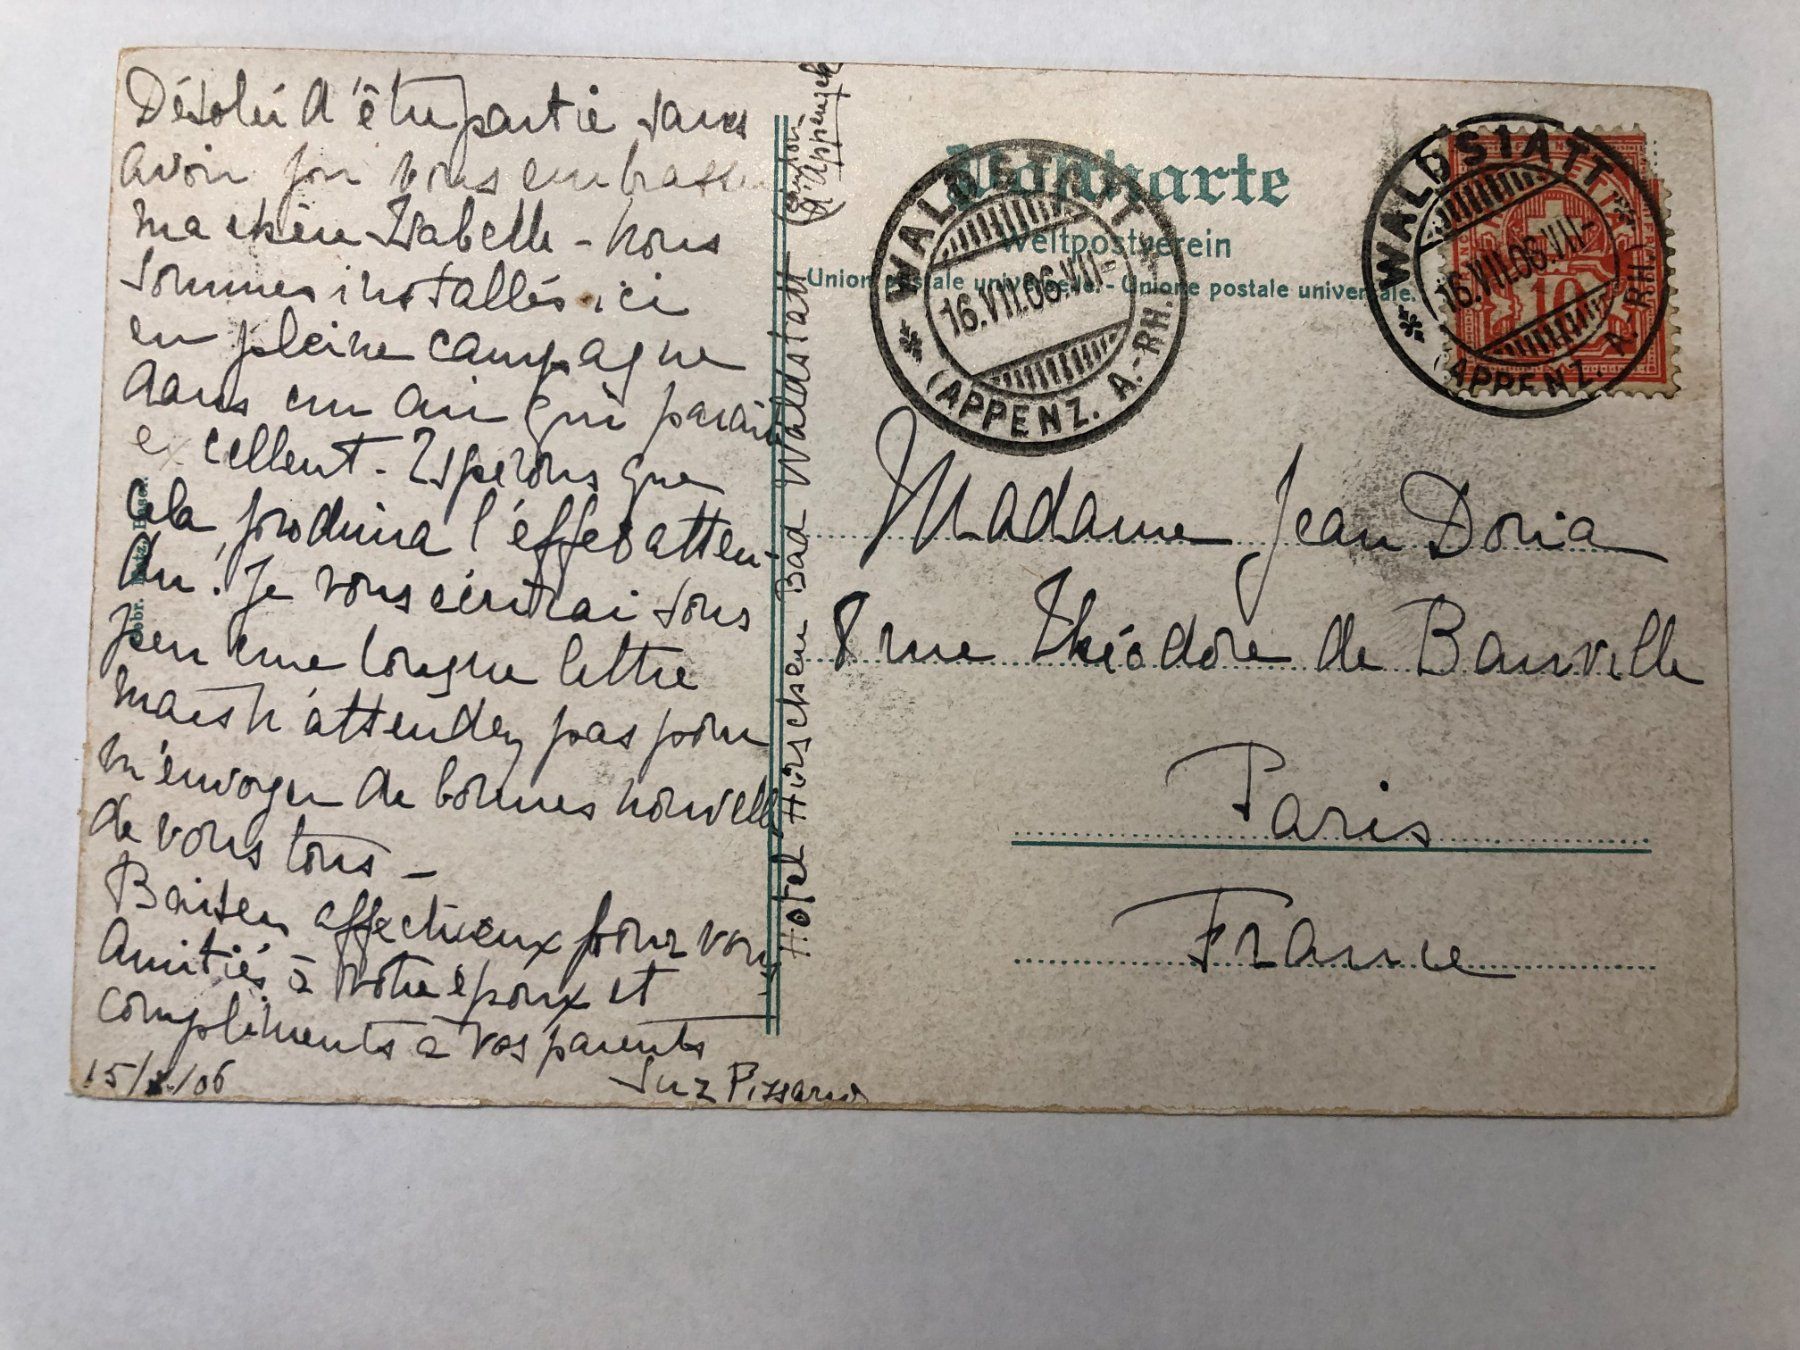 Désolée d'être partie sans
avoir pu vous embrasser
ma chère Isabelle - Nous
sommes installés ici
en pleine campagne
dans un air qui paraît
excellent - Espérons que
cela produira l'effet atten-
du! Je vous écrirai sous
peu une longue lettre
mais n'attendez pas pour
m'envoyer de bonnes nouvelles
de vous tous -
Baisers affectueux pour vous
Amitiés à votre époux et
compliments à vos parents
15/ /06 Suz Pissarro
Hotel Hirschen Bad Waldstatt
(Canton
d'Appenzell)
Postkarte
Weltpostverein
Union postale universelle. - Unione postale universale.
WALDSTATT
16.VII.06.VII-
(APPENZ. A.-RH.)
WALDSTATT
16.VII.06.VII-
(APPENZ. A.-RH.)
10
Madame Jean Doria
8 rue Théodore de Banville
Paris
France